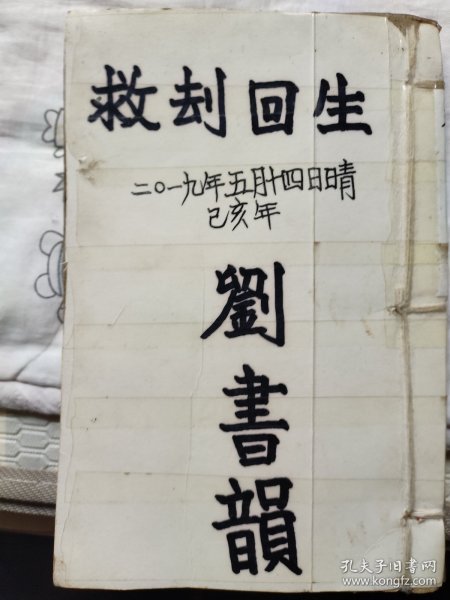 救刦回生
二〇一九年五月十四日晴
己亥年
劉書韻
孔夫子旧书网
www.kongfz.com